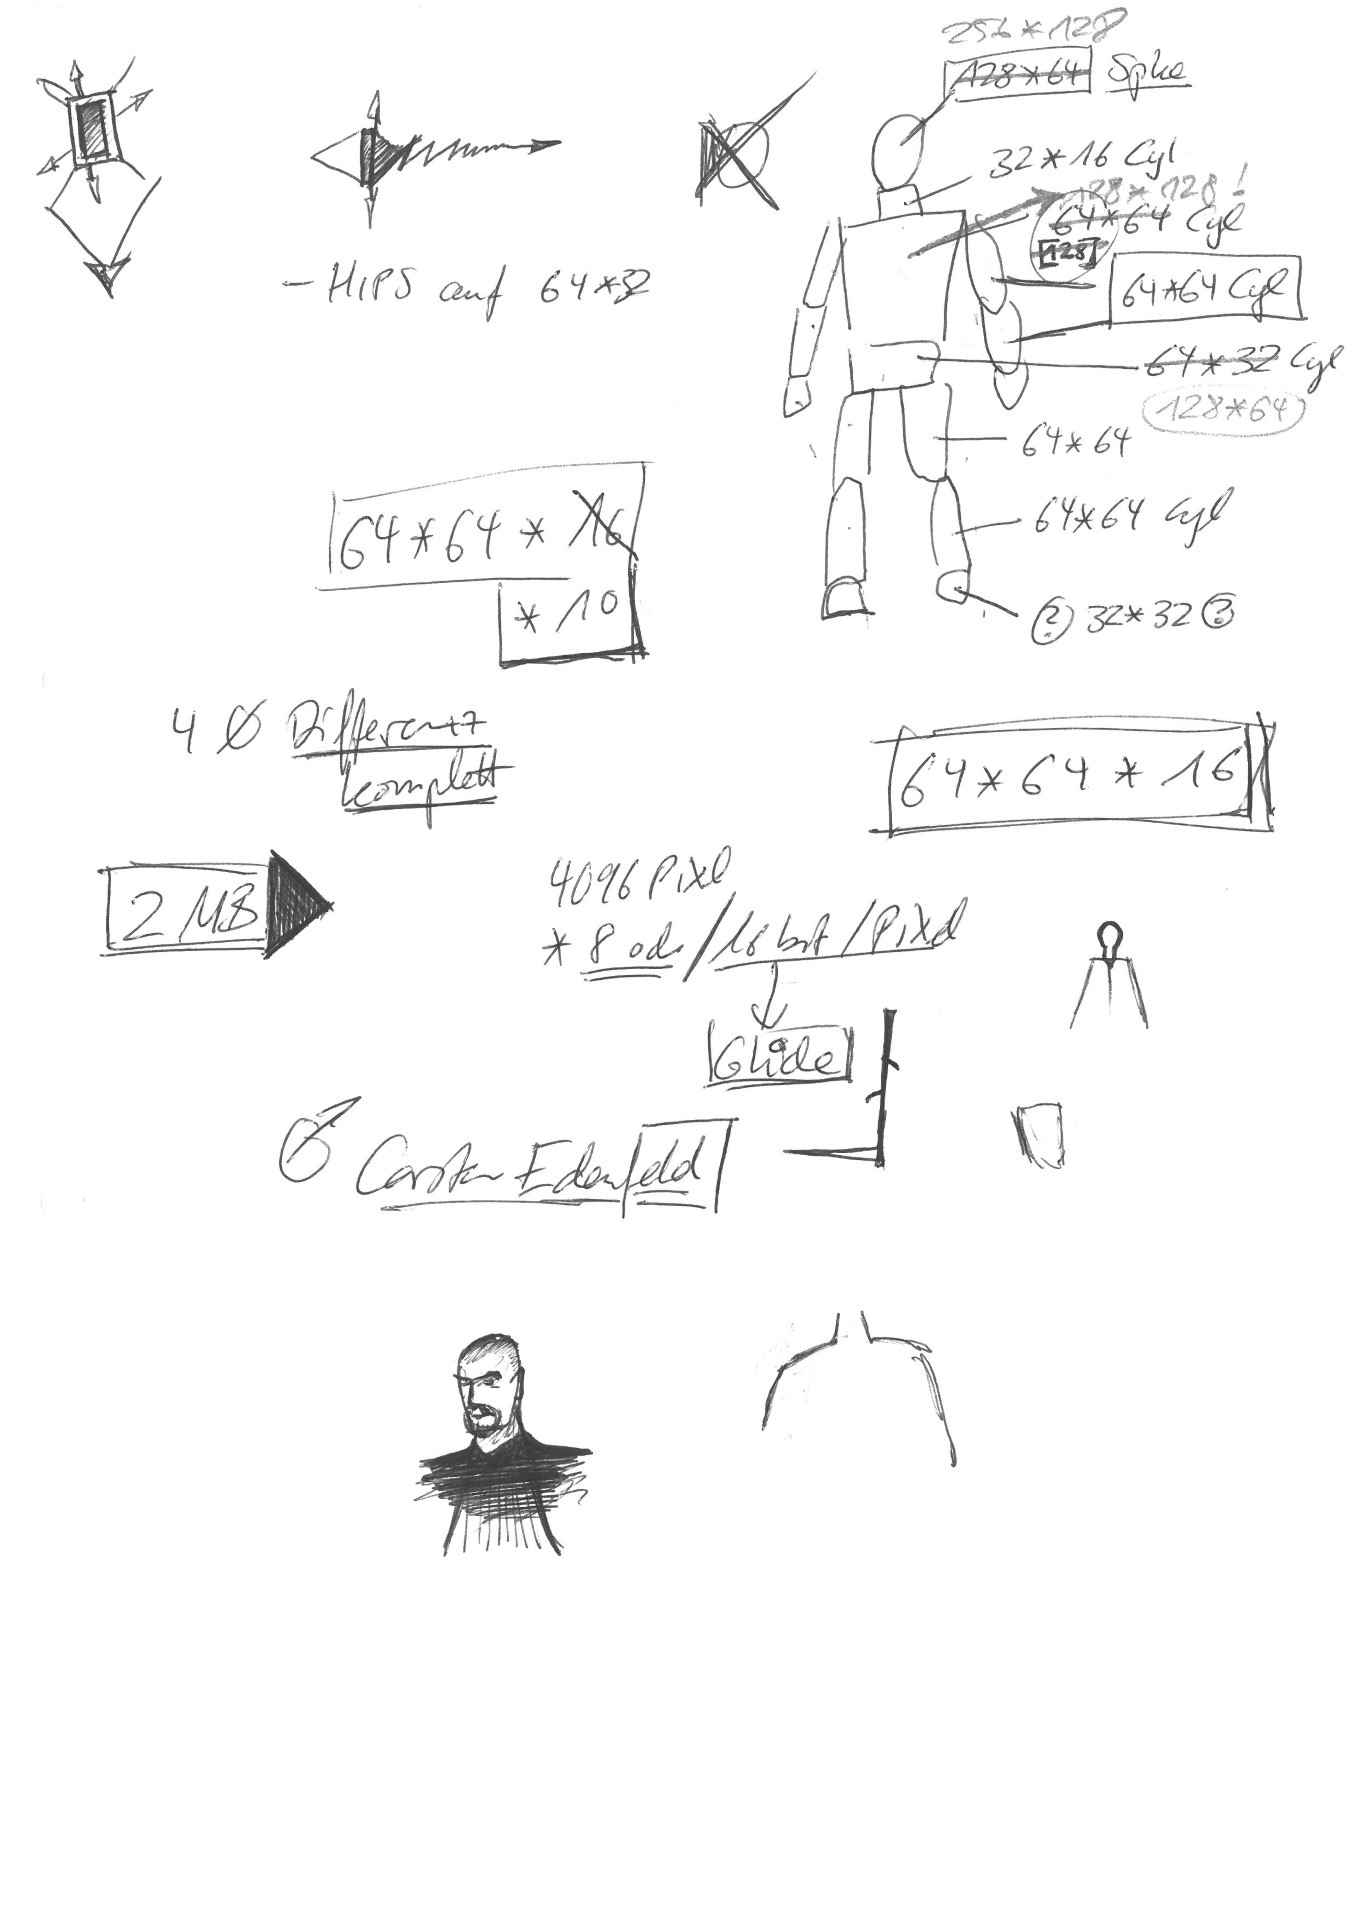 256*128
128*64 Sphe
32*16 Cyl
128*128!
64*64 Cyl
[128]
- HIPS auf 64*32
64*64 Cyl
64*32 Cyl
128*64
64*64
64*64 Cyl
64*64*16
*10
? 32*32 ?
4 Ø Differenz
komplett
64*64*16
2 MB
4096 Pixel
* 8 od. / 16 bit / Pixel
Glide
Carsten Edenfeld